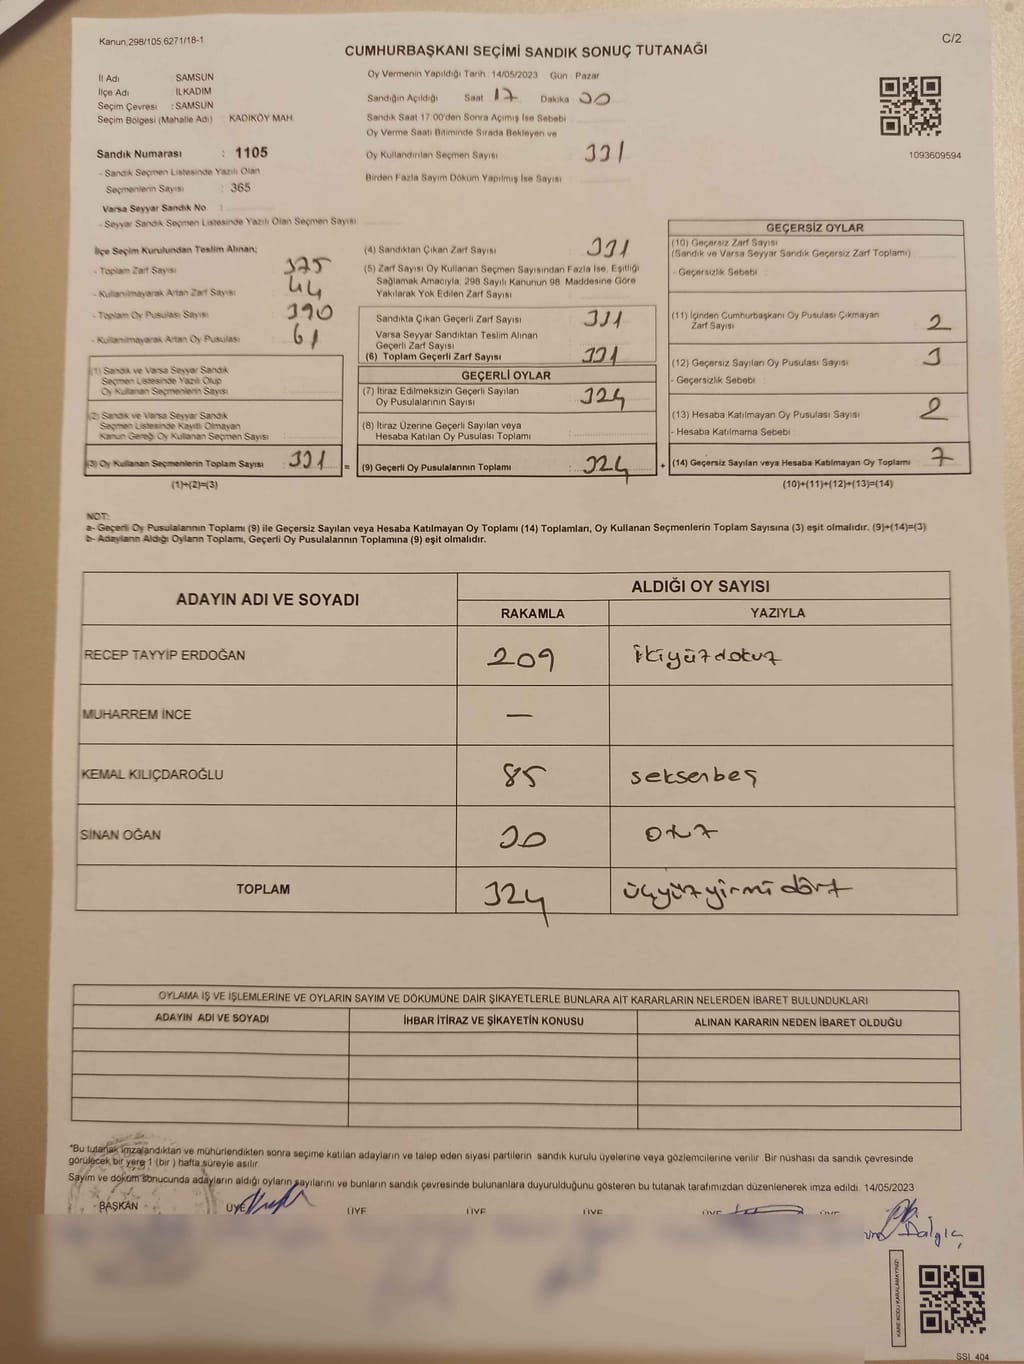 Kanun,298/105,6271/18-1
C/2
CUMHURBAŞKANI SEÇİMİ SANDIK SONUÇ TUTANAĞI
İl Adı SAMSUN
İlçe Adı İLKADIM
Seçim Çevresi : SAMSUN
Seçim Bölgesi (Mahalle Adı) : KADIKÖY MAH.
Oy Vermenin Yapıldığı Tarih : 14/05/2023 Gün : Pazar
Sandığın Açıldığı Saat 17 Dakika 30
Sandık Saat 17:00'den Sonra Açımış İse Sebebi
Oy Verme Saati Bitiminde Sırada Bekleyen ve
Oy Kullandırılan Seçmen Sayısı 331
Birden Fazla Sayım Döküm Yapılmış İse Sayısı
1093609594
Sandık Numarası : 1105
- Sandık Seçmen Listesinde Yazılı Olan
Seçmenlerin Sayısı : 365
Varsa Seyyar Sandık No
- Seyyar Sandık Seçmen Listesinde Yazılı Olan Seçmen Sayısı
İlçe Seçim Kurulundan Teslim Alınan;
- Toplam Zarf Sayısı 375
- Kullanılmayarak Artan Zarf Sayısı 44
- Toplam Oy Pusulası Sayısı 390
- Kullanılmayarak Artan Oy Pusulası 61
(1) Sandık ve Varsa Seyyar Sandık
Seçmen Listesinde Yazılı Olup
Oy Kullanan Seçmenlerin Sayısı
(2) Sandık ve Varsa Seyyar Sandık
Seçmen Listesinde Kayıtlı Olmayan
Kanun Gereği Oy Kullanan Seçmen Sayısı
(3) Oy Kullanan Seçmenlerin Toplam Sayısı : 331 =
(1)+(2)=(3)
(4) Sandıktan Çıkan Zarf Sayısı 331
(5) Zarf Sayısı Oy Kullanan Seçmen Sayısından Fazla İse, Eşitliği
Sağlamak Amacıyla, 298 Sayılı Kanunun 98. Maddesine Göre
Yakılarak Yok Edilen Zarf Sayısı
Sandıkta Çıkan Geçerli Zarf Sayısı 331
Varsa Seyyar Sandıktan Teslim Alınan
Geçerli Zarf Sayısı
(6) Toplam Geçerli Zarf Sayısı 331
GEÇERLİ OYLAR
(7) İtiraz Edilmeksizin Geçerli Sayılan
Oy Pusulalarının Sayısı 324
(8) İtiraz Üzerine Geçerli Sayılan veya
Hesaba Katılan Oy Pusulası Toplamı
(9) Geçerli Oy Pusulalarının Toplamı : 324 +
GEÇERSİZ OYLAR
(10) Geçersiz Zarf Sayısı
(Sandık ve Varsa Seyyar Sandık Geçersiz Zarf Toplamı)
- Geçersizlik Sebebi
(11) İçinden Cumhurbaşkanı Oy Pusulası Çıkmayan
Zarf Sayısı 2
(12) Geçersiz Sayılan Oy Pusulası Sayısı 3
- Geçersizlik Sebebi
(13) Hesaba Katılmayan Oy Pusulası Sayısı 2
- Hesaba Katılmama Sebebi
(14) Geçersiz Sayılan veya Hesaba Katılmayan Oy Toplamı 7
(10)+(11)+(12)+(13)=(14)
NOT:
a- Geçerli Oy Pusulalarının Toplamı (9) ile Geçersiz Sayılan veya Hesaba Katılmayan Oy Toplamı (14) Toplamları, Oy Kullanan Seçmenlerin Toplam Sayısına (3) eşit olmalıdır. (9)+(14)=(3)
b- Adayların Aldığı Oyların Toplamı, Geçerli Oy Pusulalarının Toplamına (9) eşit olmalıdır.
ADAYIN ADI VE SOYADI
ALDIĞI OY SAYISI
RAKAMLA YAZIYLA
RECEP TAYYİP ERDOĞAN 209 ikiyüzdokuz
MUHARREM İNCE —
KEMAL KILIÇDAROĞLU 85 seksenbeş
SİNAN OĞAN 30 otuz
TOPLAM 324 üçyüzyirmidört
OYLAMA İŞ VE İŞLEMLERİNE VE OYLARIN SAYIM VE DÖKÜMÜNE DAİR ŞİKAYETLERLE BUNLARA AİT KARARLARIN NELERDEN İBARET BULUNDUKLARI
ADAYIN ADI VE SOYADI İHBAR İTİRAZ VE ŞİKAYETİN KONUSU ALINAN KARARIN NEDEN İBARET OLDUĞU
"Bu tutanak imzalandıktan ve mühürlendikten sonra seçime katılan adayların ve talep eden siyasi partilerin sandık kurulu üyelerine veya gözlemcilerine verilir. Bir nüshası da sandık çevresinde
görülecek bir yere 1 (bir ) hafta süreyle asılır.
Sayım ve döküm sonucunda adayların aldığı oyların sayılarını ve bunların sandık çevresinde bulunanlara duyurulduğunu gösteren bu tutanak tarafımızdan düzenlenerek imza edildi. 14/05/2023
BAŞKAN ÜYE ÜYE ÜYE ÜYE ÜYE ÜYE
Dalgıç
KARE KODU KARALAMAYINIZ!
SSI_404